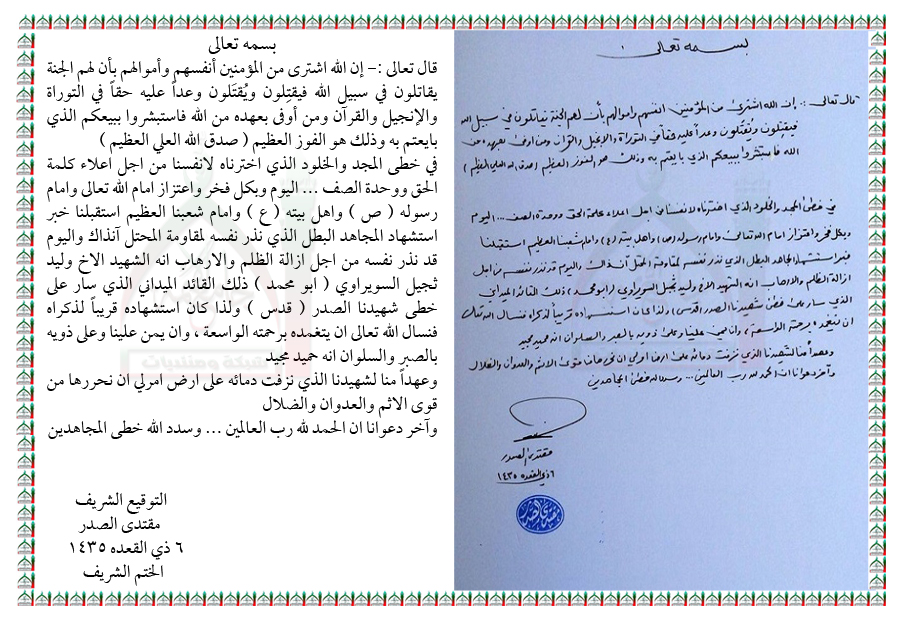 بسمه تعالى
قال تعالى :– إن الله اشترى من المؤمنين أنفسهم وأموالهم بأن لهم الجنة
يقاتلون في سبيل الله فيقتِلون ويُقتَلون وعداً عليه حقاً في التوراة
والإنجيل والقرآن ومن أوفى بعهده من الله فاستبشروا ببيعكم الذي
بايعتم به وذلك هو الفوز العظيم ( صدق الله العلي العظيم )
في خطى المجد والخلود الذي اخترناه لانفسنا من اجل اعلاء كلمة
الحق ووحدة الصف ... اليوم وبكل فخر واعتزاز امام الله تعالى وامام
رسوله ( ص ) واهل بيته ( ع ) وامام شعبنا العظيم استقبلنا خبر
استشهاد المجاهد البطل الذي نذر نفسه لمقاومة المحتل آنذاك واليوم
قد نذر نفسه من اجل ازالة الظلم والارهاب انه الشهيد الاخ وليد
ثجيل السويراوي ( ابو محمد ) ذلك القائد الميداني الذي سار على
خطى شهيدنا الصدر ( قدس ) ولذا كان استشهاده قريباً لذكراه
فنسال الله تعالى ان يتغمده برحمته الواسعة ، وان يمن علينا وعلى ذويه
بالصبر والسلوان انه حميد مجيد
وعهداً منا لشهيدنا الذي نزفت دمائه على ارض امرلي ان نحررها من
قوى الاثم والعدوان والضلال
وآخر دعوانا ان الحمد لله رب العالمين ... وسدد الله خطى المجاهدين
التوقيع الشريف
مقتدى الصدر
٦ ذي القعده ١٤٣٥
الختم الشريف
شبكة ومنتديات
بسمه تعالى
قال تعالى :- إن الله اشترى من المؤمنين انفسهم واموالهم بأن لهم الجنة يقاتلون في سبيل الله
فيقتلون ويُقتلون وعداً عليه حقاً في التوراة والانجيل والقران ومن اوفى بعهده من
الله فاستبشروا ببيعكم الذي بايعتم به وذلك هو الفوز العظيم ( صدق الله العلي العظيم )
في خطى المجد والخلود الذي اخترناه لانفسنا من اجل اعلاء كلمة الحق ووحدة الصف ... اليوم
وبكل فخر واعتزاز امام الله تعالى وامام رسوله (ص) واهل بيته (ع) وامام شعبنا العظيم استقبلنا
خبر استشهاد المجاهد البطل الذي نذر نفسه لمقاومة المحتل آنذاك واليوم قد نذر نفسه من اجل
ازالة الظلم والارهاب انه الشهيد الاخ وليد ثجيل السويراوي (ابو محمد) ذلك القائد الميداني
الذي سار على خطى شهيدنا الصدر (قدس) ولذا كان استشهاده قريباً لذكراه فنسال الله تعالى
ان يتغمده برحمته الواسعة ، وان يمن علينا وعلى ذويه بالصبر والسلوان انه حميد مجيد
وعهداً منا لشهيدنا الذي نزفت دمائه على ارض امرلي ان نحررها من قوى الاثم والعدوان والضلال
وآخر دعوانا ان الحمد لله رب العالمين ... وسدد الله خطى المجاهدين
مقتدى الصدر
٦ ذي القعده ١٤٣٥